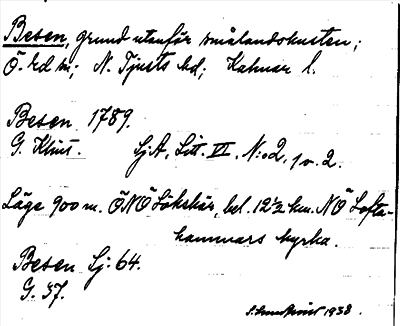 Besen, grund utanför smålandskusten;
Ö. Ed sn; N. Tjusts hd; Kalmar l.
Besen 1789.
G. Klint. SjA, Litt. III, N:o 2, 1 o. 2.
Läge 900 m. ÖNÖ Lökskär, bel. 12½ km. NÖ Lofta-
hammars kyrka.
Besen Sj: 64.
G. 37.
1938.